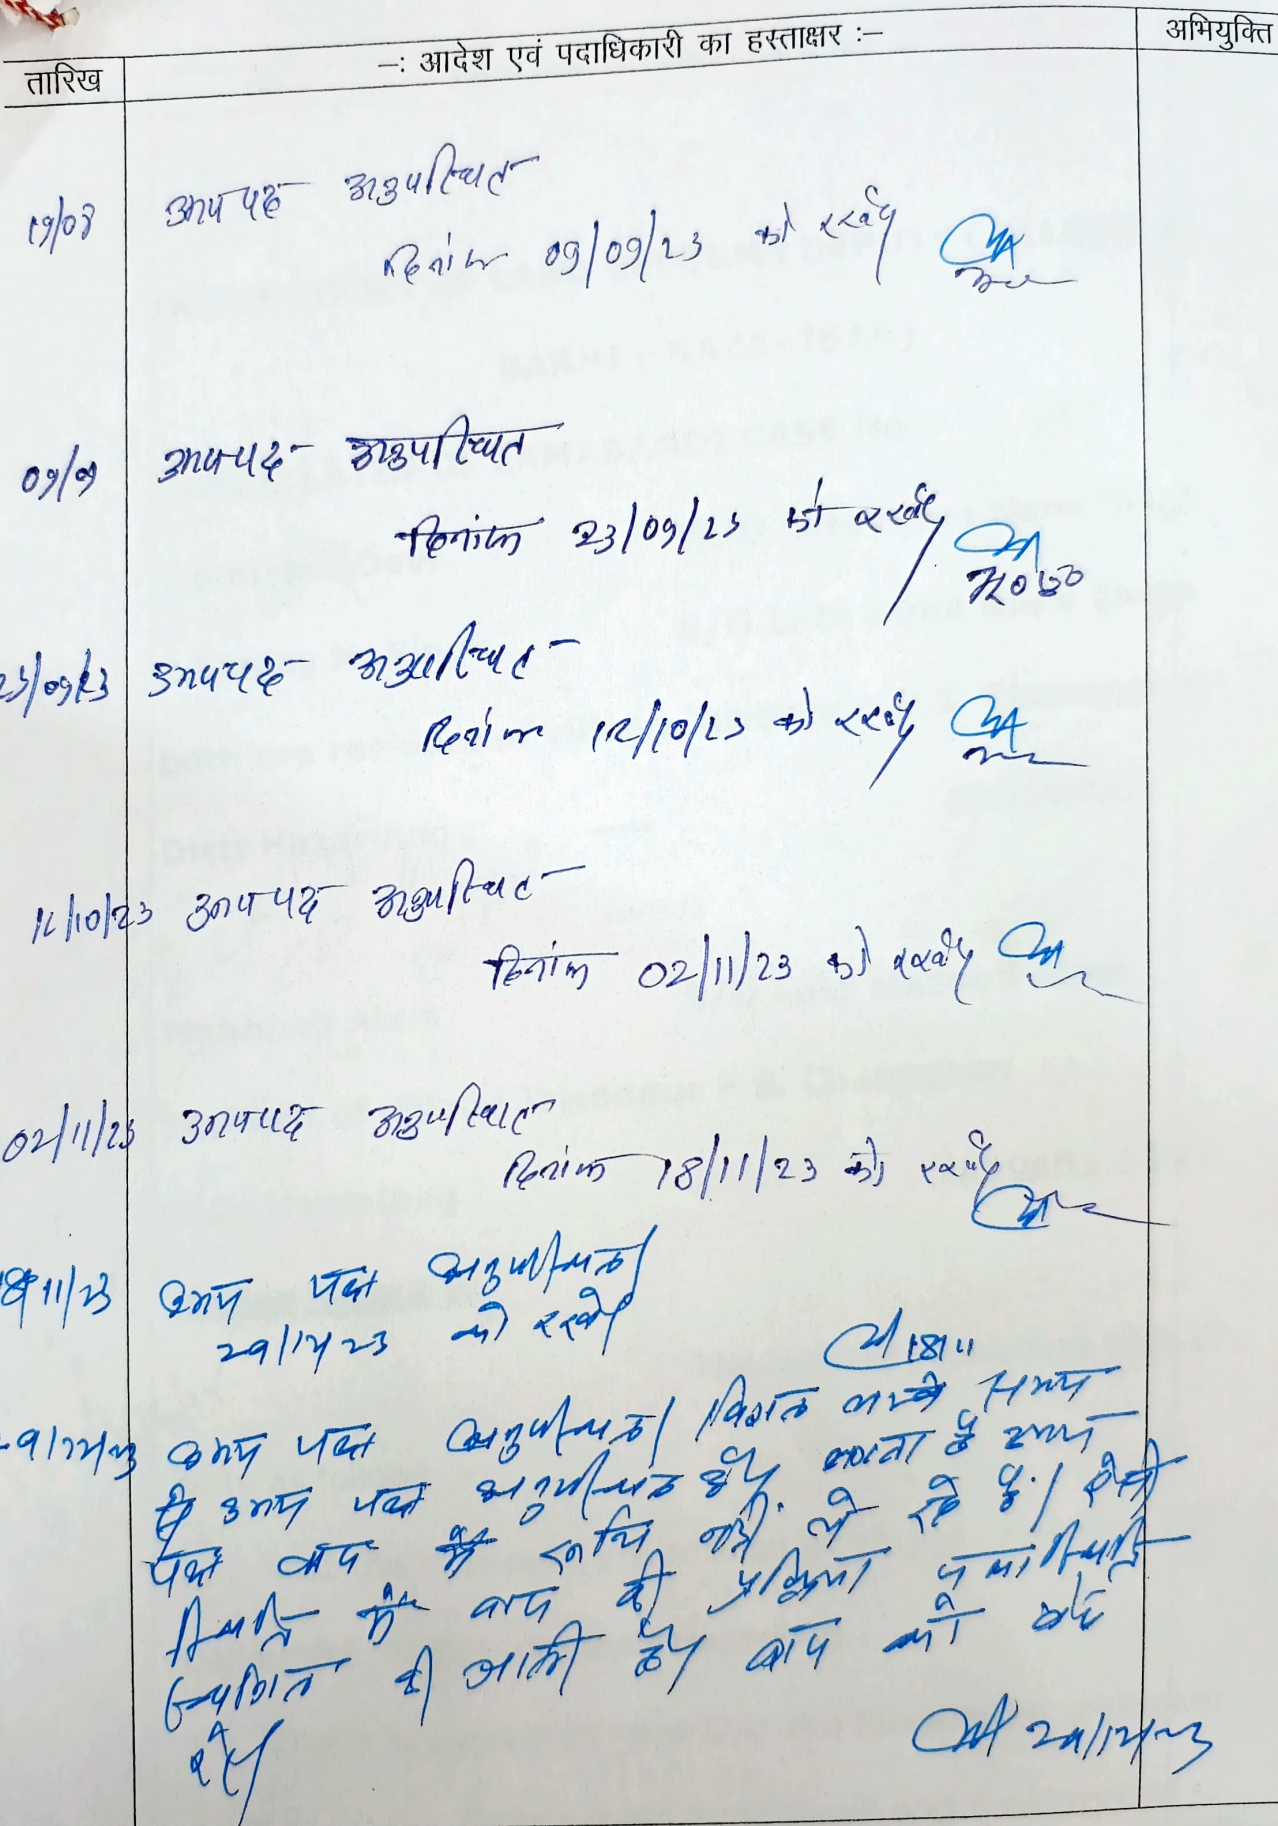 तारिख
-: आदेश एवं पदाधिकारी का हस्ताक्षर :-
अभियुक्ति
19/08 उभय पक्ष अनुपस्थित
दिनांक 09/09/23 को रखें
09/9 उभय पक्ष अनुपस्थित
दिनांक 23/09/23 को रखें
23/09/23 उभय पक्ष अनुपस्थित
दिनांक 12/10/23 को रखें
12/10/23 उभय पक्ष अनुपस्थित
दिनांक 02/11/23 को रखें
02/11/23 उभय पक्ष अनुपस्थित
दिनांक 18/11/23 को रखें
18/11/23 उभय पक्ष अनुपस्थित।
29/12/23 को रखें।
18/11
29/12/23 उभय पक्ष अनुपस्थित। विगत लम्बे समय
से उभय पक्ष अनुपस्थित हैं। लगता है उभय
पक्ष वाद में रूचि नहीं ले रहे हैं। ऐसी
स्थिति में वाद की प्रक्रिया यथास्थिति
स्थगित की जाती है। वाद को बंद
करें।
29/12/23